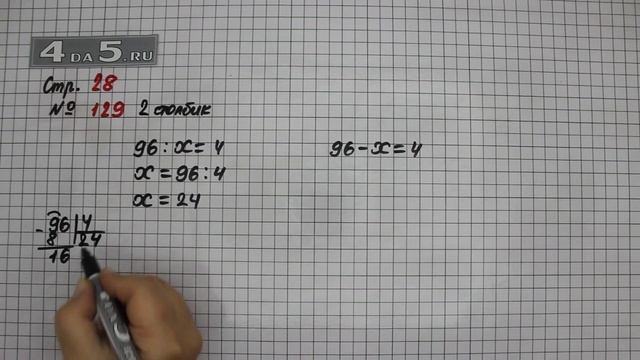 4 DA 5.RU
Стр. 28
№ 129 2 столбик
96 : x = 4
x = 96 : 4
x = 24
96 - x = 4
- 96 | 4
8 | 24
16